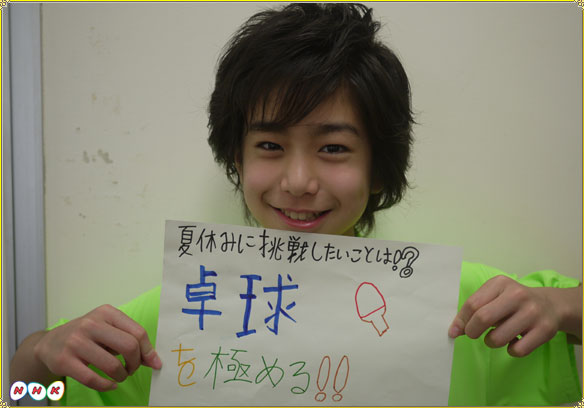 夏休みに挑戦したいことは!?
卓球
を極める!!
NHK